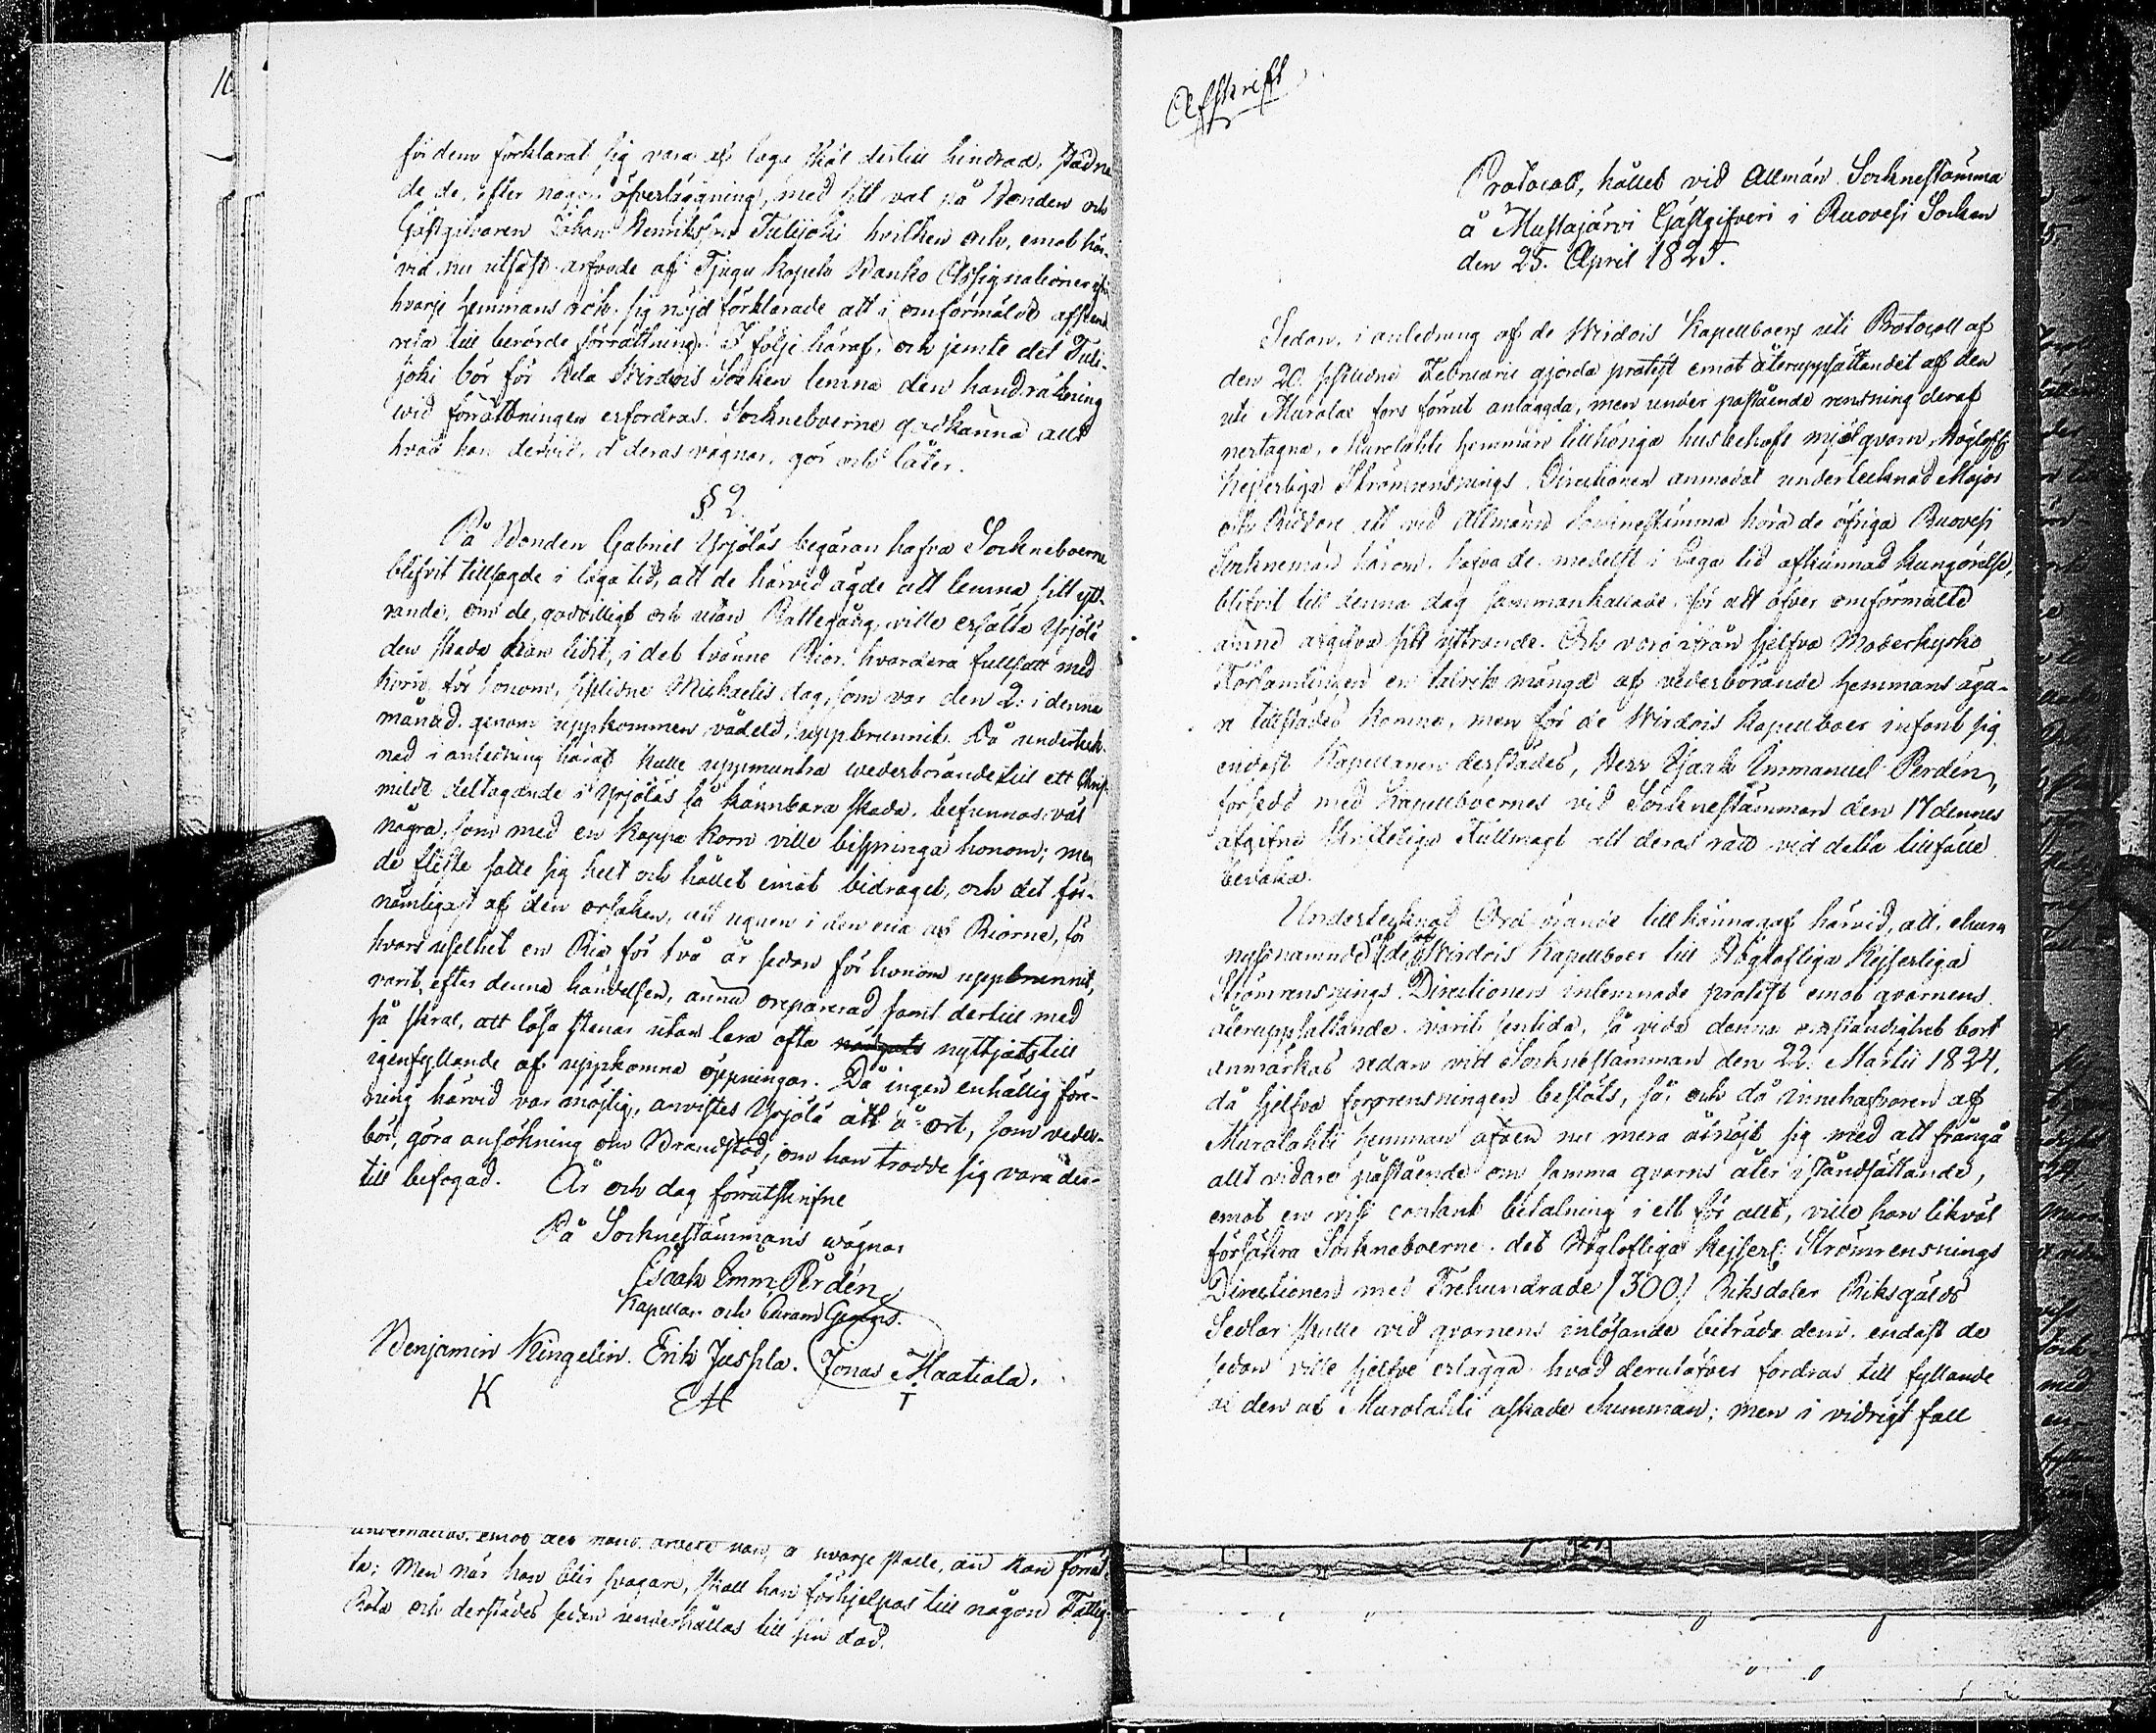 10
för dem förklarat sig vara af laga skäl dertill hindrad, stadna
de de, efter någon öfverläggning, med sitt val på Bonden och
Gästgifvaren Johan Henriksson Tulijoki hvilken och, emot här-
vid nu utfäst arfvode af Tjugu Kopek Banko Assignationer
hvarje hemmans rök, sig nöjd förklarade att i omförmäldt afseende
resa till berörde förrättning. I följe häraf, och jemte det Tuli-
joki bör för hela Wirdois Socken lemna den handräkning
wid förrättningen erfordras. Sockneboerne godkänna allt
hvad han dervid, å deras vägnar, gör och låter.
§ 2
På Bonden Gabriel Yrjöläs begäran hafva Sockneboerne
blifvit tillsagde i laga tid, att de härvid ägde att lemna sitt ytt-
rande, om de, godvilligt och utan Rättegång, wille ersätta Yrjölä
den skada han lidit, i det tvänne Rior, hvardera fullsatt med
korn för honom, sistledne Michaelis dag, som var den 2: i denne
månad, genom uppkommen vådeld, uppbrunnit. Då underteck-
nad i anledning häraf skulle uppmuntra wederbörande till ett Christ-
mildt deltagande i Yrjöläs så kännbara skada, befunnos väl
några, som med en kappa korn ville bispringa honom; men
de fleste satte sig helt och hållet emot bidraget, och det för-
nämligast af den orsaken, att ugnen i den ena af Riorne, för
hvars uselhet en Ria för två år sedan för honom uppbrunnit,
varit, efter denna händelsen, ännu oreparerad samt dertill med
så skral, att lösa stenar utan lera ofta nyttjats till
igenfyllande af uppkomna öppningar. Då ingen enhällig före-
ning härvid var möjlig, anvistes Yrjölä att å ort, som veder-
bör, göra ansökning om Brandstod, om han trodde sig vara der-
till befogad. År och dag förutskrifne
På Socknestämmans wägnar
Isaak Emm: Perdén
Kapellan och
Benjamin Ringelin. Erik Juspla. Jonas Maatiala.
K EM T
underhållas, emot det
ta; Men när han blir svagare, skall han förhjelpas till någon Fattig-
Rota och derstädes sedan underhållas till sin död.
Afskrift
Protocoll, hållet vid Allmän Socknestämma
å Mustajärvi Gästgifveri i Ruovesi Socken
den 25. April 1825.
Sedan, i anledning af de Wirdois Kapellboers uti Protocoll af
den 20. sistledne Februarii gjorda protest emot återuppsättandet af den
uti Murolax fors förut anlaggda, men under påstående rensning deraf
nertagna, Murolahti hemman tillhöriga husbehofs mjölqvarn, Höglofliga
Kejserliga Strömrensnings Directionen anmodat undertecknad Major
och Riddare att vid Allmänn Socknestämma höra de öfriga Ruovesi
Socknemän härom, hafva de medelst i Laga tid afkunnad kungörelse,
blifvit till denna dag sammankallade, för att öfver omförmälte
ämne afgifva sitt yttrande. Och voro ifrån sjelfva Moderkyrko
Församlingen en talrik mängd af vederbörande hemmans äga-
re tillstädes komne, men för de Wirdois Kapellboer infant sig
endast Kapellanen derstädes, Herr Isaak Immanuel Perdén,
försedd med Kapellboernes vid Socknestämman den 17 dennes
afgifne Skrifteliga Fullmagt att deras rätt vid detta tillfälle
bevaka.
Undertecknad Ordförande tillkännagaf härvid, att, ehuru
nyssnämnde af de Wirdois Kapellboer till Höglofliga Kejserliga
Strömrensnings Directionen inlemnade protest emot qvarnens
återuppsättande varit sentida, så vida denna omständighet bort
anmärkas redan vid Socknestämman den 22. Martii 1824.
då sjelfva forsrensningen beslöts, så, och då innehafvaren af
Murolahti hemman äfven nu mera åtnöjt sig med att frångå
allt vidare påstående om samma qvarns åter iståndsättande,
emot en viss contant betalning i ett för allt, ville han likväl
försäkra Sockneboerne, det Höglofliga Kejserl: Strömrensnings
Directionen med Trehundrade (300) Riksdaler Riksgälds
Sedlar skulle vid qvarnens inlösande biträda dem, endast de
sedan ville sjelfve erlägga hvad derutöfver fordras till fyllande
af den af Murolahti äskade Summan; men i vidrigt fall